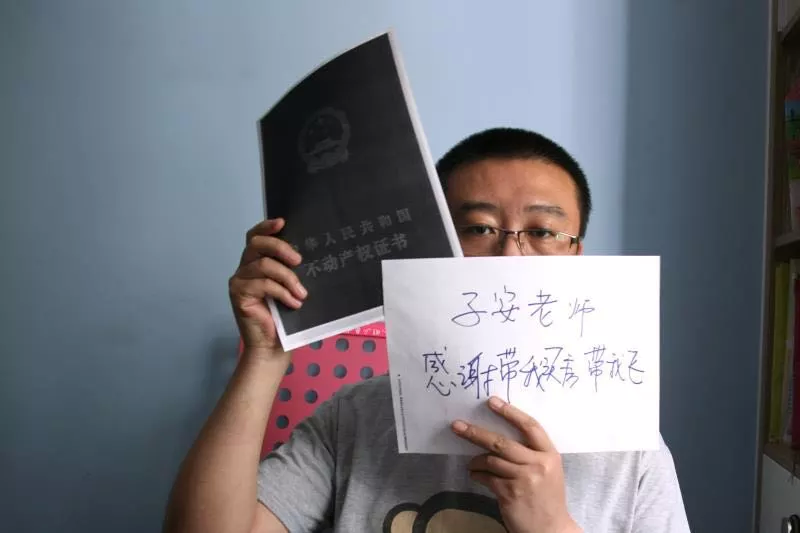 中华人民共和国
不动产权证书
子安老师
感谢带我买房带我飞